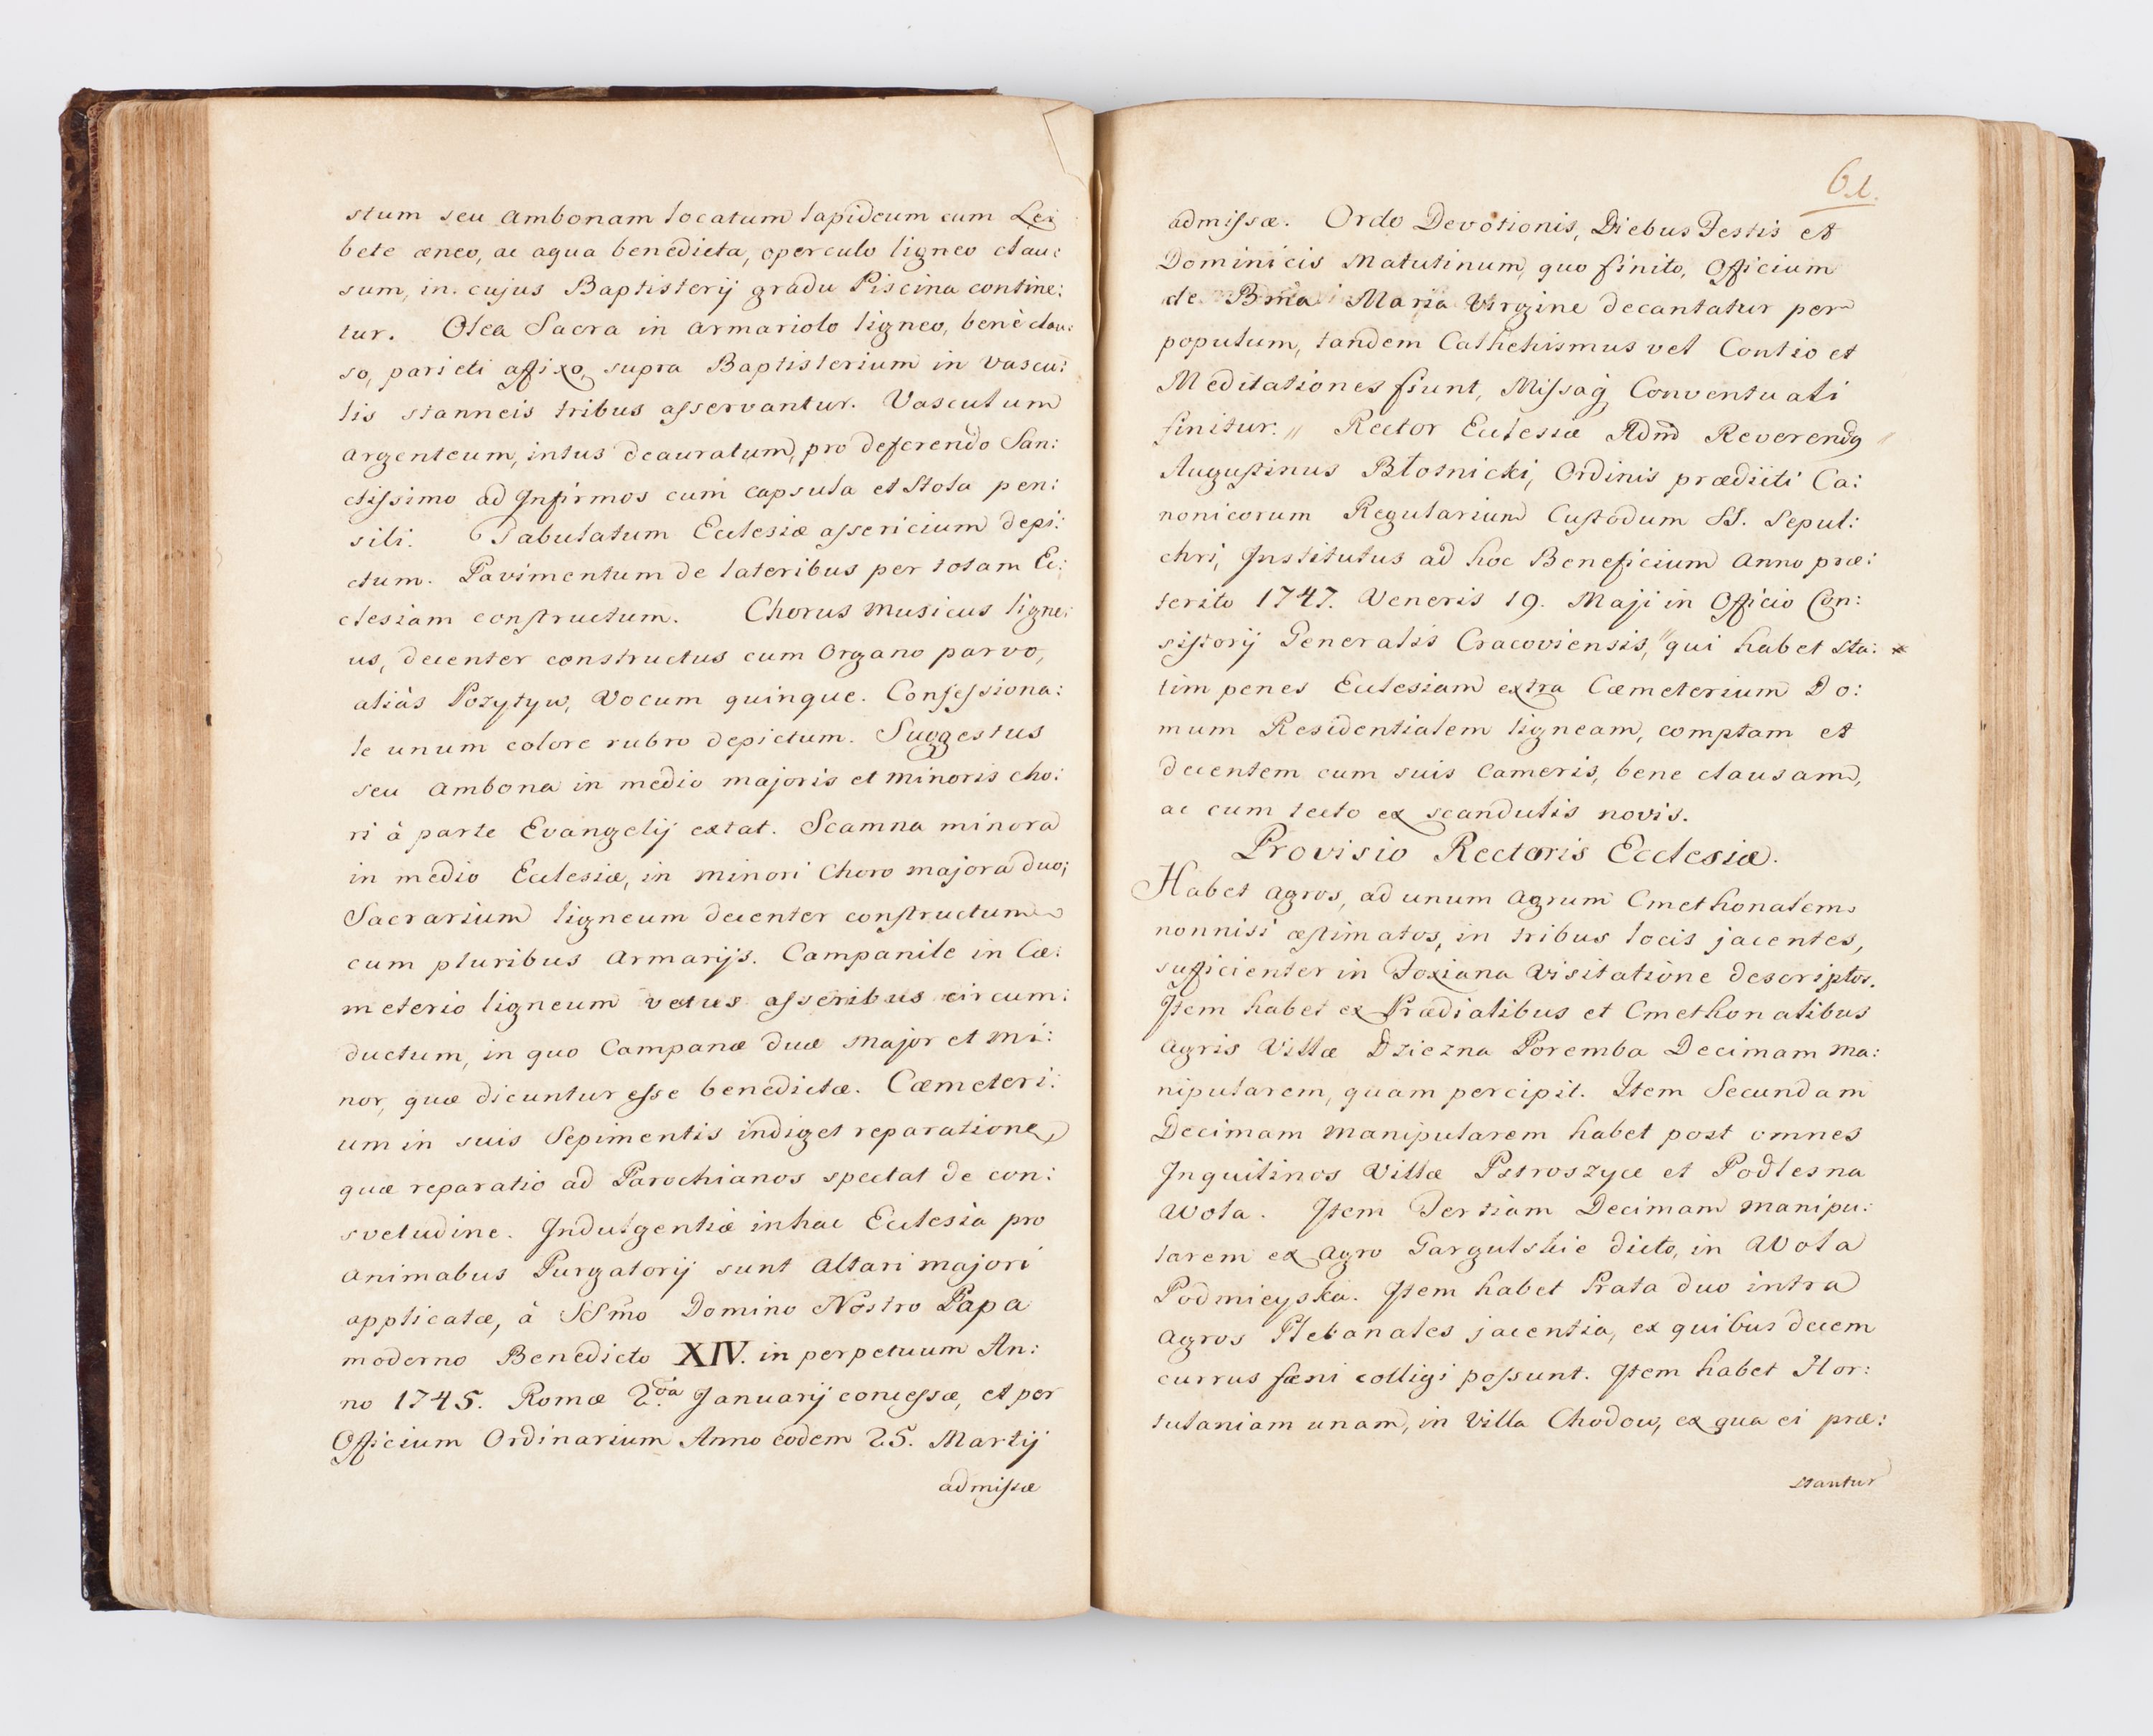 stum seu Ambonam locatum lapideum cum Le:
bete æneo, ac aqua benedicta, operculo ligneo clau:
sum, in cujus Baptisterij gradu Piscina contine:
tur. Olea Sacra in armariolo ligneo, benè clau:
so, parieti affixo, supra Baptisterium in vascu:
lis stanneis tribus asservantur. Vasculum
argenteum, intus deauratum, pro deferendo San:
ctissimo ad Infirmos cum capsula et Stola pen:
sili. Tabulatum Ecclesiæ assericium depi:
ctum. Pavimentum de lateribus per totam Ec:
clesiam constructum. Chorus musicus ligne:
us, decenter constructus cum Organo parvo,
aliàs Pozytyw, Vocum quinque. Confessiona:
le unum colore rubro depictum. Suggestus
seu Ambona in medio majoris et minoris cho:
ri à parte Evangelij extat. Scamna minora
in medio Ecclesiæ, in minori Choro majora duo;
Sacrarium ligneum decenter constructum
cum pluribus Armarijs. Campanile in Cæ:
meterio ligneum vetus asseribus circum:
ductum, in quo Campanæ duæ major et mi:
nor, quæ dicuntur esse benedictæ. Cæmeteri:
um in suis Sepimentis indiget reparatione,
quæ reparatio ad Parochianos spectat de con:
svetudine. Indulgentiæ in hac Ecclesia pro
Animabus Purgatorij sunt Altari majori
applicatæ, à SSmo Domino Nostro Papa
moderno Benedicto XIV. in perpetuum An:
no 1745. Romæ 2.da Januarij concessæ, et per
Officium Ordinarium Anno eodem 25. Martij
admissæ
61.
admissæ. Ordo Devotionis, Diebus Festis et
Dominicis Matutinum, quo finito, Officium
de Bma Maria Virgine decantatur per
populum, tandem Cathehismus vel Contio et
Meditationes fiunt, Missaq Conventuali
finitur. // Rector Ecclesiæ Admd Reverendg //
Augustinus Błotnicki, Ordinis prædicti Ca:
nonicorum Regularium Custodum SS. Sepul:
chri, Institutus ad hoc Beneficium Anno præ:
terito 1747. Veneris 19. Maji in Officio Con:
sistorij Generalis Cracoviensis, // qui habet sta: x
tim penes Ecclesiam extra Cæmeterium Do:
mum Residentialem ligneam, comptam et
decentem cum suis Cameris, bene clausam,
ac cum tecto ex scandulis novis.
Provisio Rectoris Ecclesiæ.
Habet agros, ad unum agrum Cmethonalem
nonnisi æstimatos, in tribus locis jacentes,
sufficienter in Foxiana Visitatione descriptos.
Item habet ex Prædialibus et Cmethonalibus
agris Villæ Dziezna Poremba Decimam ma:
nipularem, quam percipit. Item Secundam
Decimam manipularem habet post omnes
Inquilinos Villæ Pstroszyce et Podlesna
Wola. Item Tertiam Decimam manipu:
larem ex Agro Gargulskie dicto, in Wola
Podmieyska. Item habet Prata duo intra
agros Plebanales jacentia, ex quibus decem
currus fæni colligi possunt. Item habet Hor:
tulaniam unam, in Villa Chodow, ex qua ei præ:
stantur